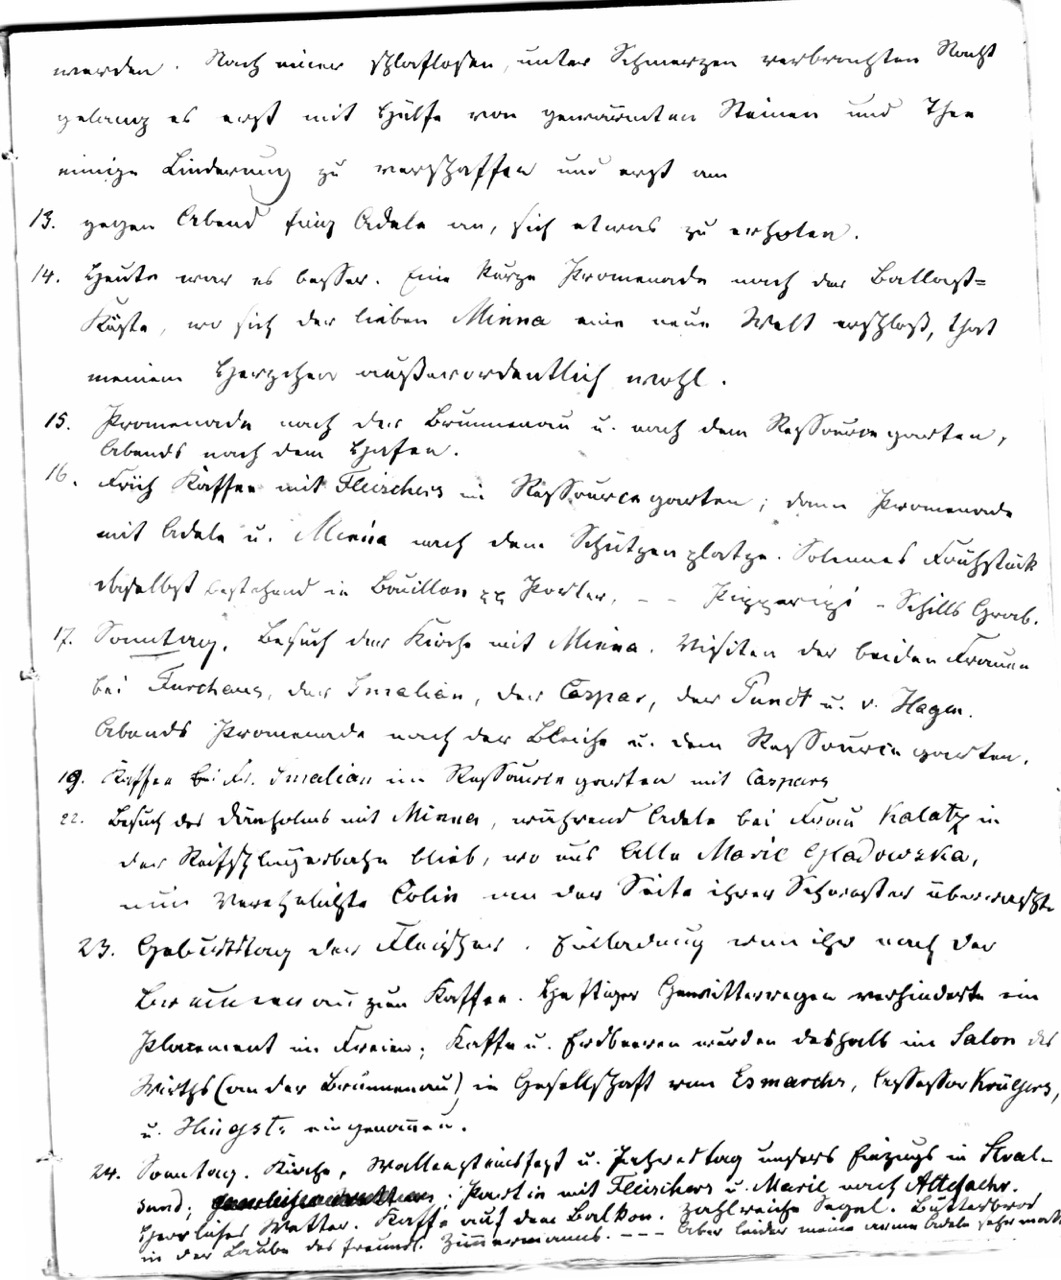 werden. Nach einer schlaflosen, unter Schmerzen verbrachten Nacht
gelang es erst mit Hülfe von gewärmten Steinen und Thee
einige Linderung zu verschaffen und erst am
13. gegen Abend fing Adele an, sich etwas zu erholen.
14. Heute war es besser. Eine kurze Promenade nach der Ballast=
Kiste, wo sich der lieben Minna eine neue Welt erschloß, that
meinem Herzchen außerordentlich wohl.
15. Promenade nach der Brunnenau u. nach dem Ressourcegarten,
Abends nach dem Hafen.
16. Früh Kaffee mit Fleischers in Ressourcegarten; dann Promenade
mit Adele u. Minna nach dem Schützenplatze. Solennes Frühstück
daselbst bestehend in Bouillon Porter, - - - Schills Grab.
17. Sonntag. Besuch der Kirche mit Minna. Visiten der beiden Frauen
bei der Caspar, der Pundt u. v. Hagen.
Abends Promenade nach der Bleiche u. dem Ressourcegarten.
19. Kaffee bei Fr. im Ressourcegarten mit Caspars
22. Besuch des Dänholms mit Minna, während Adele bei Frau Kalatz in
der Reifschlägerbahn blieb, wo uns Alle Marie Gladowska,
nun Verehelichte Colin an der Seite ihrer Schwester überraschte
23. Geburtstag der Fleischer. Einladung von ihr nach der
Brunnenau zum Kaffee. Heftiger Gewitterregen verhinderte ein
Placement im Freien; Kaffe u. Erdbeeren wurden deshalb im Salon des
Wirths (an der Brunnenau) in Gesellschaft von Esmarchs, Assessor Krügers,
u. Hingst: eingenommen.
24. Sonntag. Kirche, Wallensteinsfest u. Jahrestag unsers Einzugs in Stral-
sund; Partie mit Fleischers u. Marie nach Altefähr.
Herrliches Wetter. Kaffe auf dem Balkon. Zahlreiche Segel. Butterbrod
in der Laube des freundl. Zimmermanns. - - - Aber leider meine arme Adele sehr matt